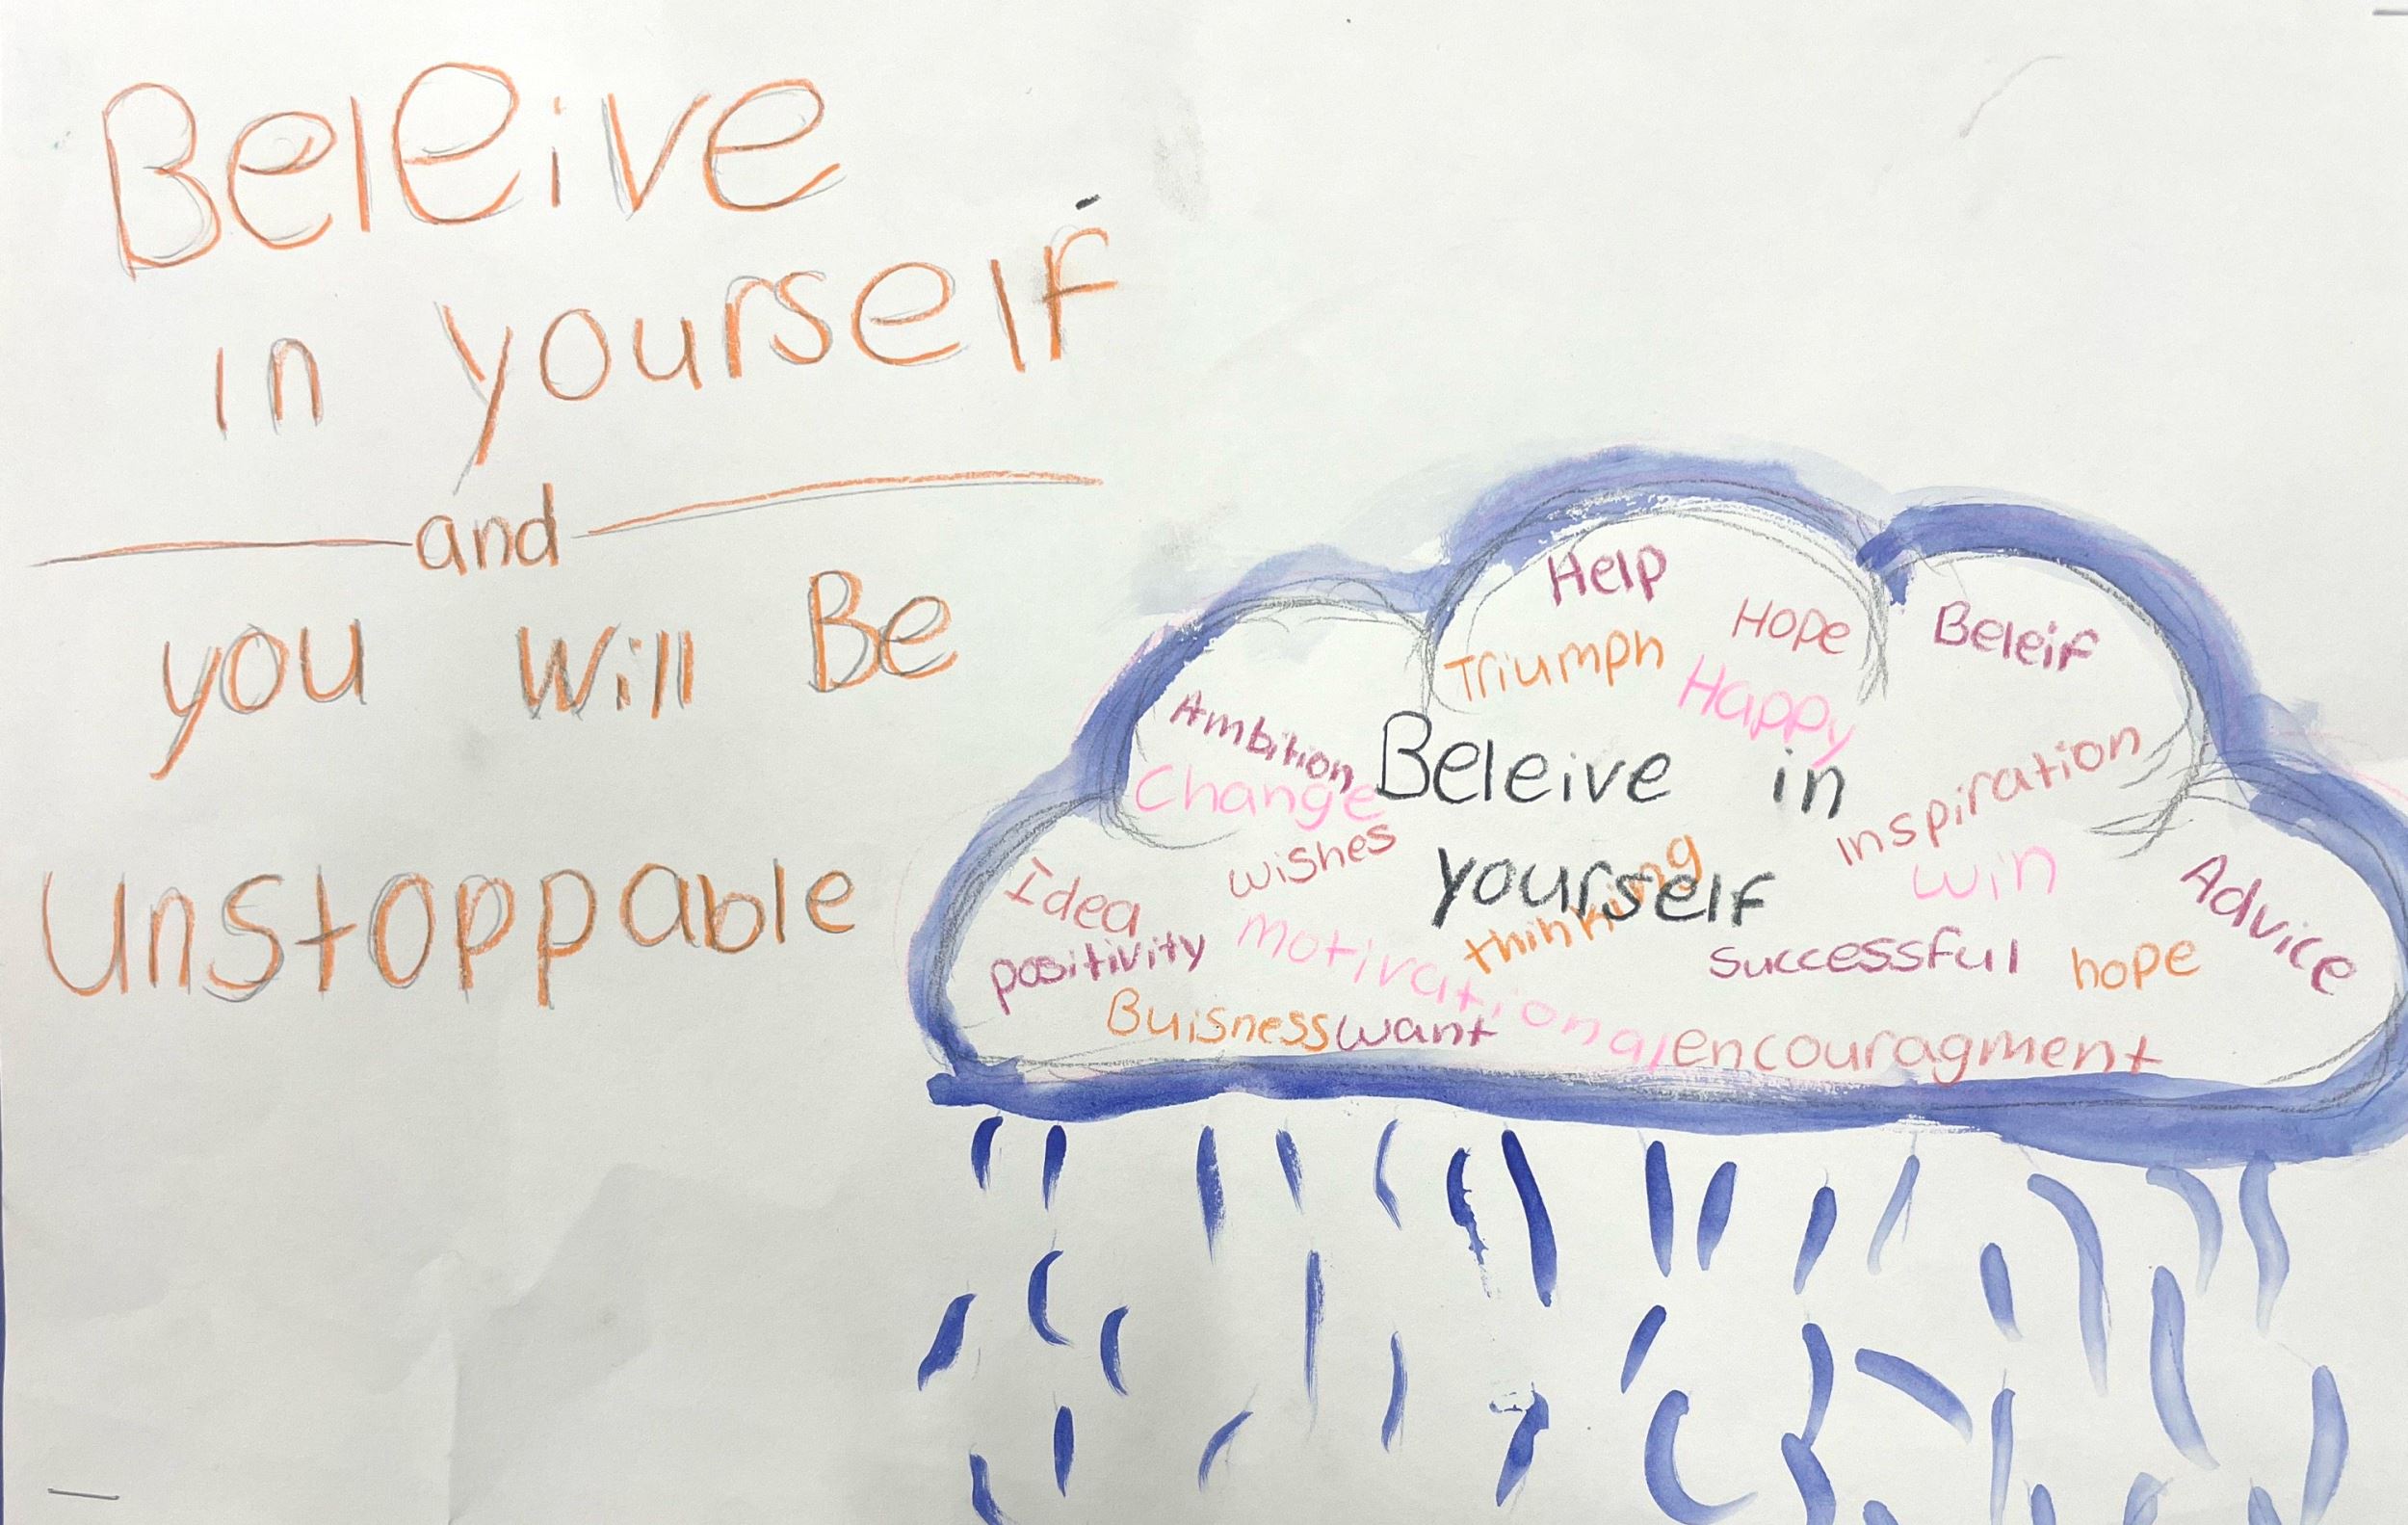 Beleive
in yourself
and
you Will Be
Unstoppable
Help
Hope
Beleif
Triumph
Happy
Ambition
Change
Beleive in
yourself
inspiration
wishes
win
Idea
thinking
Advice
positivity
motivational
successful
hope
Buisness
want
encouragment